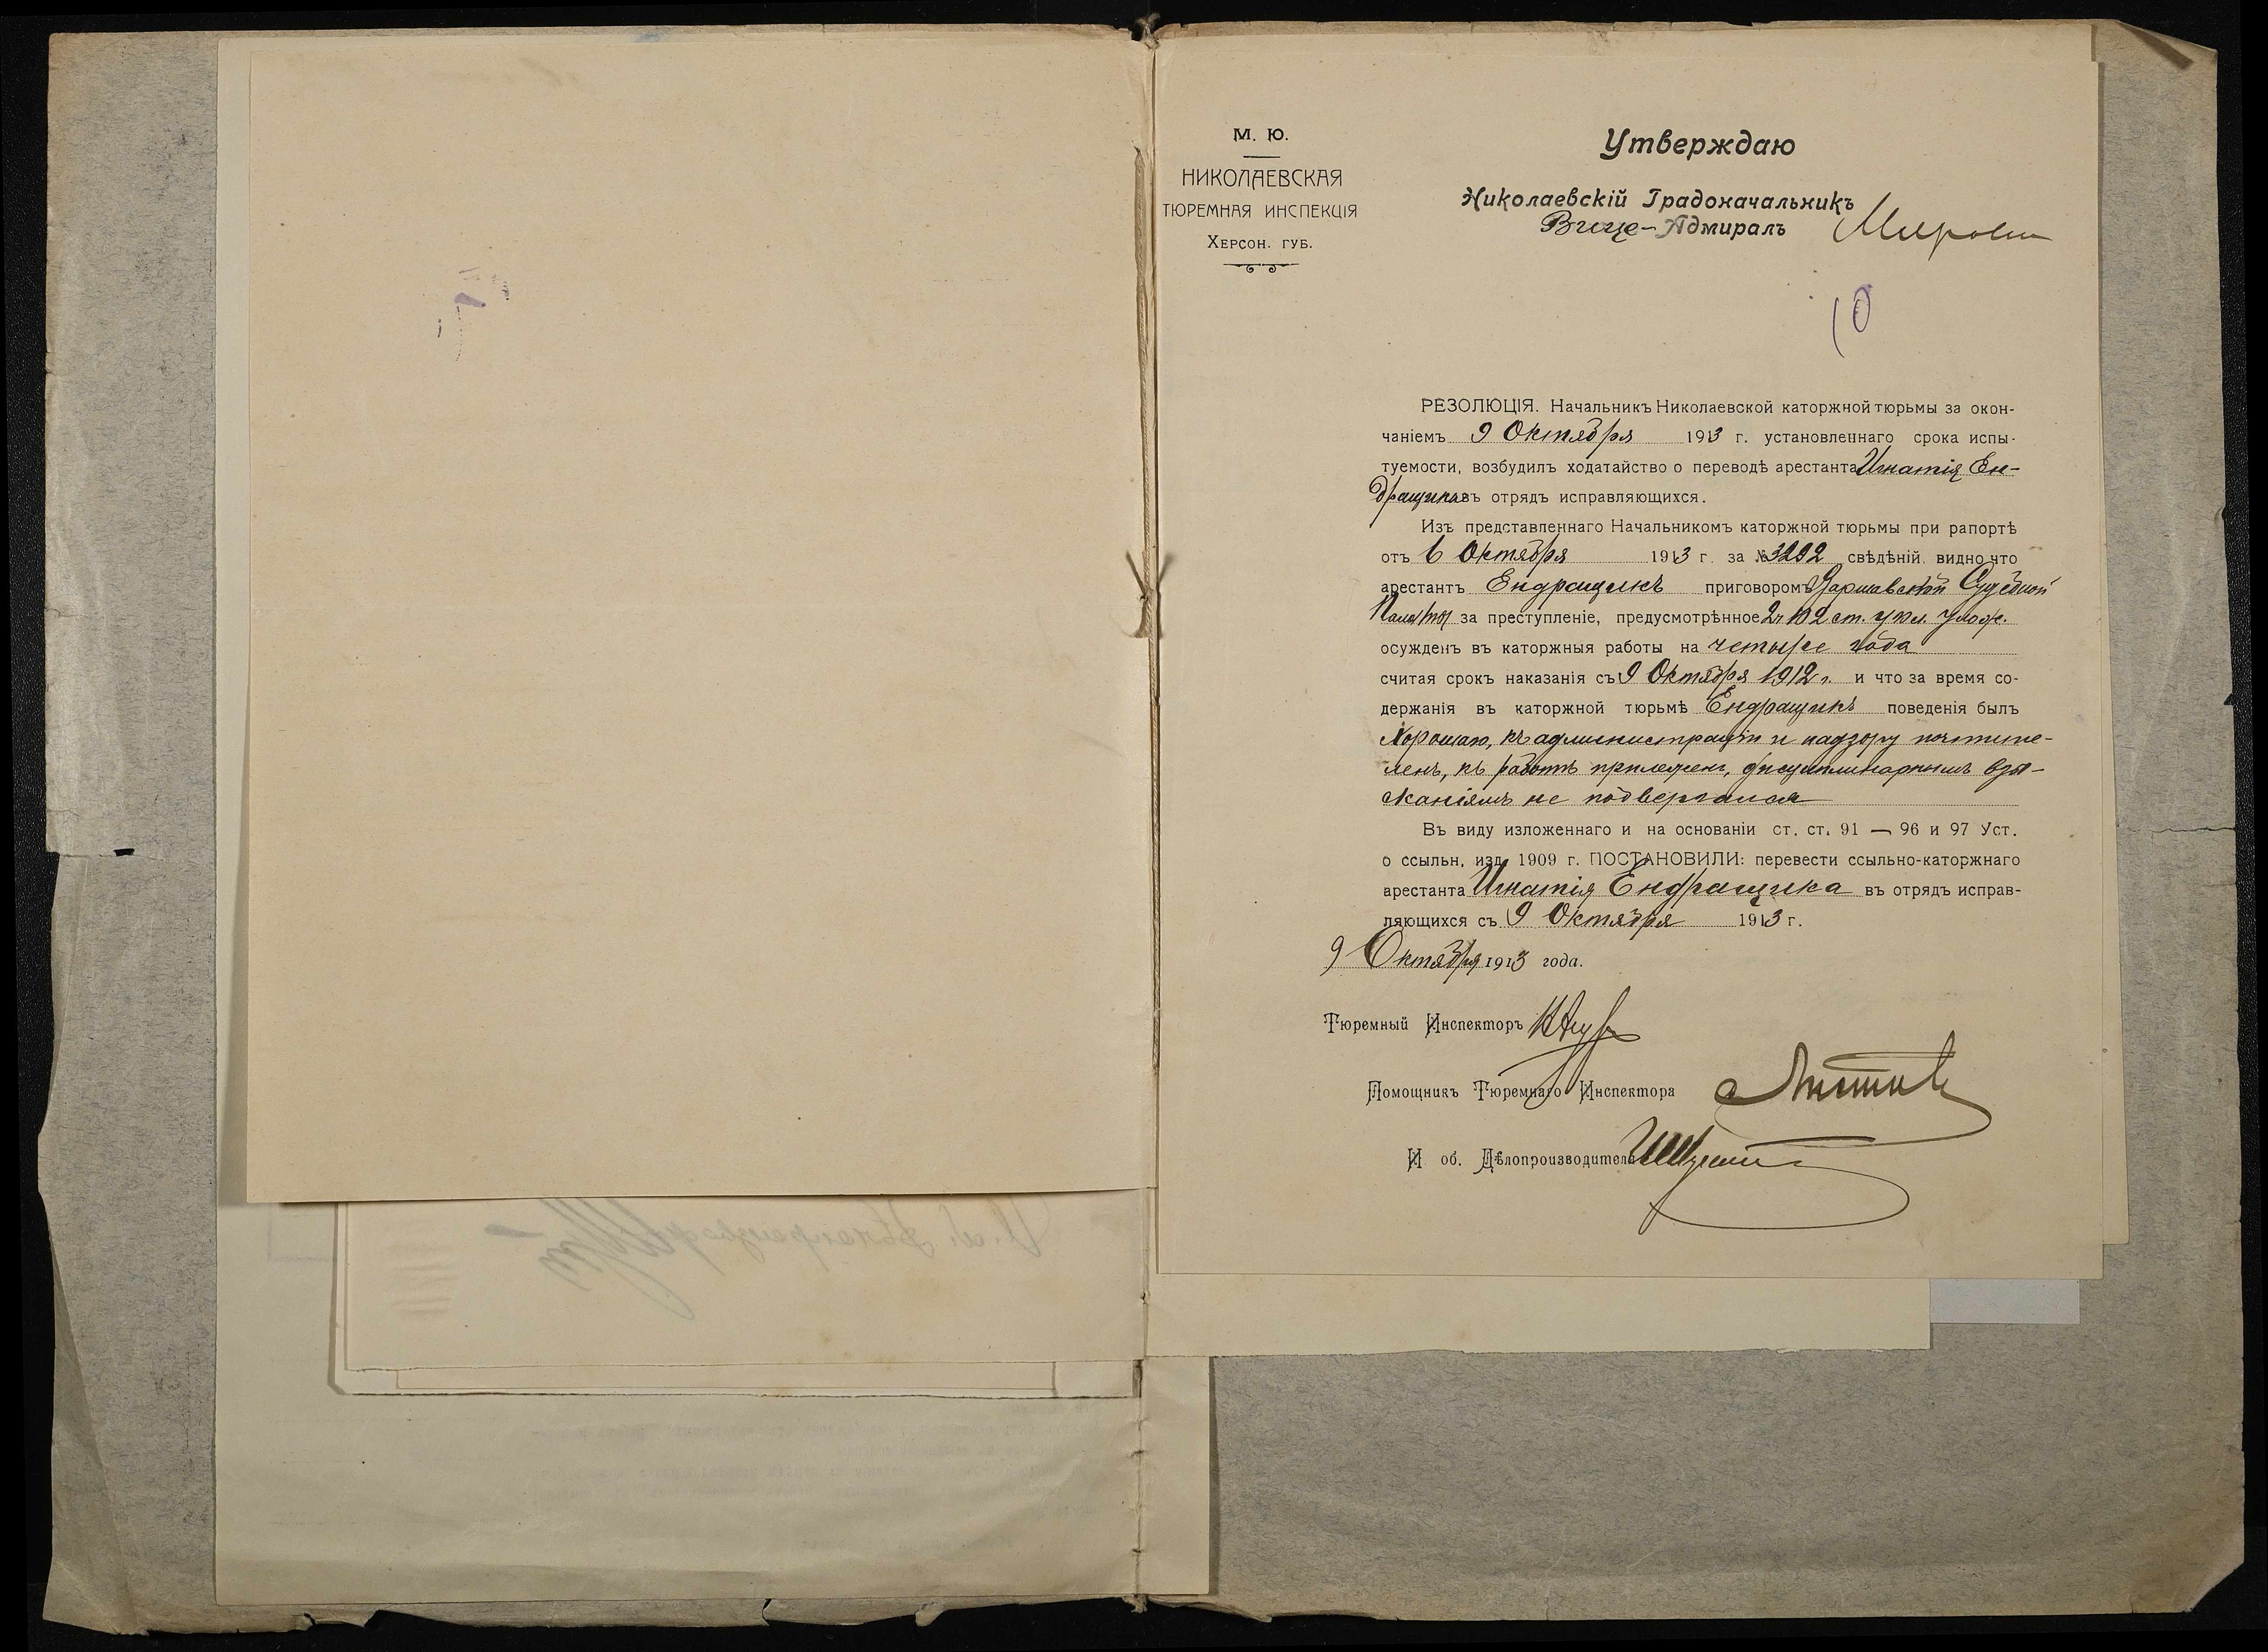 М. Ю.
НИКОЛАЕВСКАЯ
ТЮРЕМНАЯ ИНСПЕКЦІЯ
ХЕРСОН. ГУБ.
Утверждаю
Николаевскій Градоначальникъ
Вице-Адмиралъ
10
РЕЗОЛЮЦІЯ. Начальникъ Николаевской каторжной тюрьмы за окон-
чаніемъ 9 Октября 1913 г. установленнаго срока испы-
туемости, возбудилъ ходатайство о переводѣ арестанта Игнатія Ен-
дращика въ отрядъ исправляющихся.
Изъ представленнаго Начальникомъ каторжной тюрьмы при рапортѣ
отъ 6 Октября 1913 г. за № 3292 свѣдѣній видно что
арестантъ Ендращикъ приговоромъ Варшавской Судебной
Палаты за преступленіе, предусмотрѣнное 2 ч 102 ст. угол. улож.
осужденъ въ каторжныя работы на четыре года
считая срокъ наказанія съ 9 Октября 1912 г. и что за время со-
держанія въ каторжной тюрьмѣ Ендращикъ поведенія былъ
Хорошаго, къ администраціи и надзору почтите-
ленъ, къ работѣ прилеженъ, дисциплинарнымъ взы-
сканіямъ не подвергался
Въ виду изложеннаго и на основаніи ст. ст. 91 — 96 и 97 Уст.
о ссыльн. изд. 1909 г. ПОСТАНОВИЛИ: перевести ссыльно-каторжнаго
арестанта Игнатія Ендращика въ отрядъ исправ-
ляющихся съ 9 Октября 1913 г.
9 Октября 1913 года.
Тюремный Инспекторъ
Помощникъ Тюремнаго Инспектора
И об. Дѣлопроизводителя